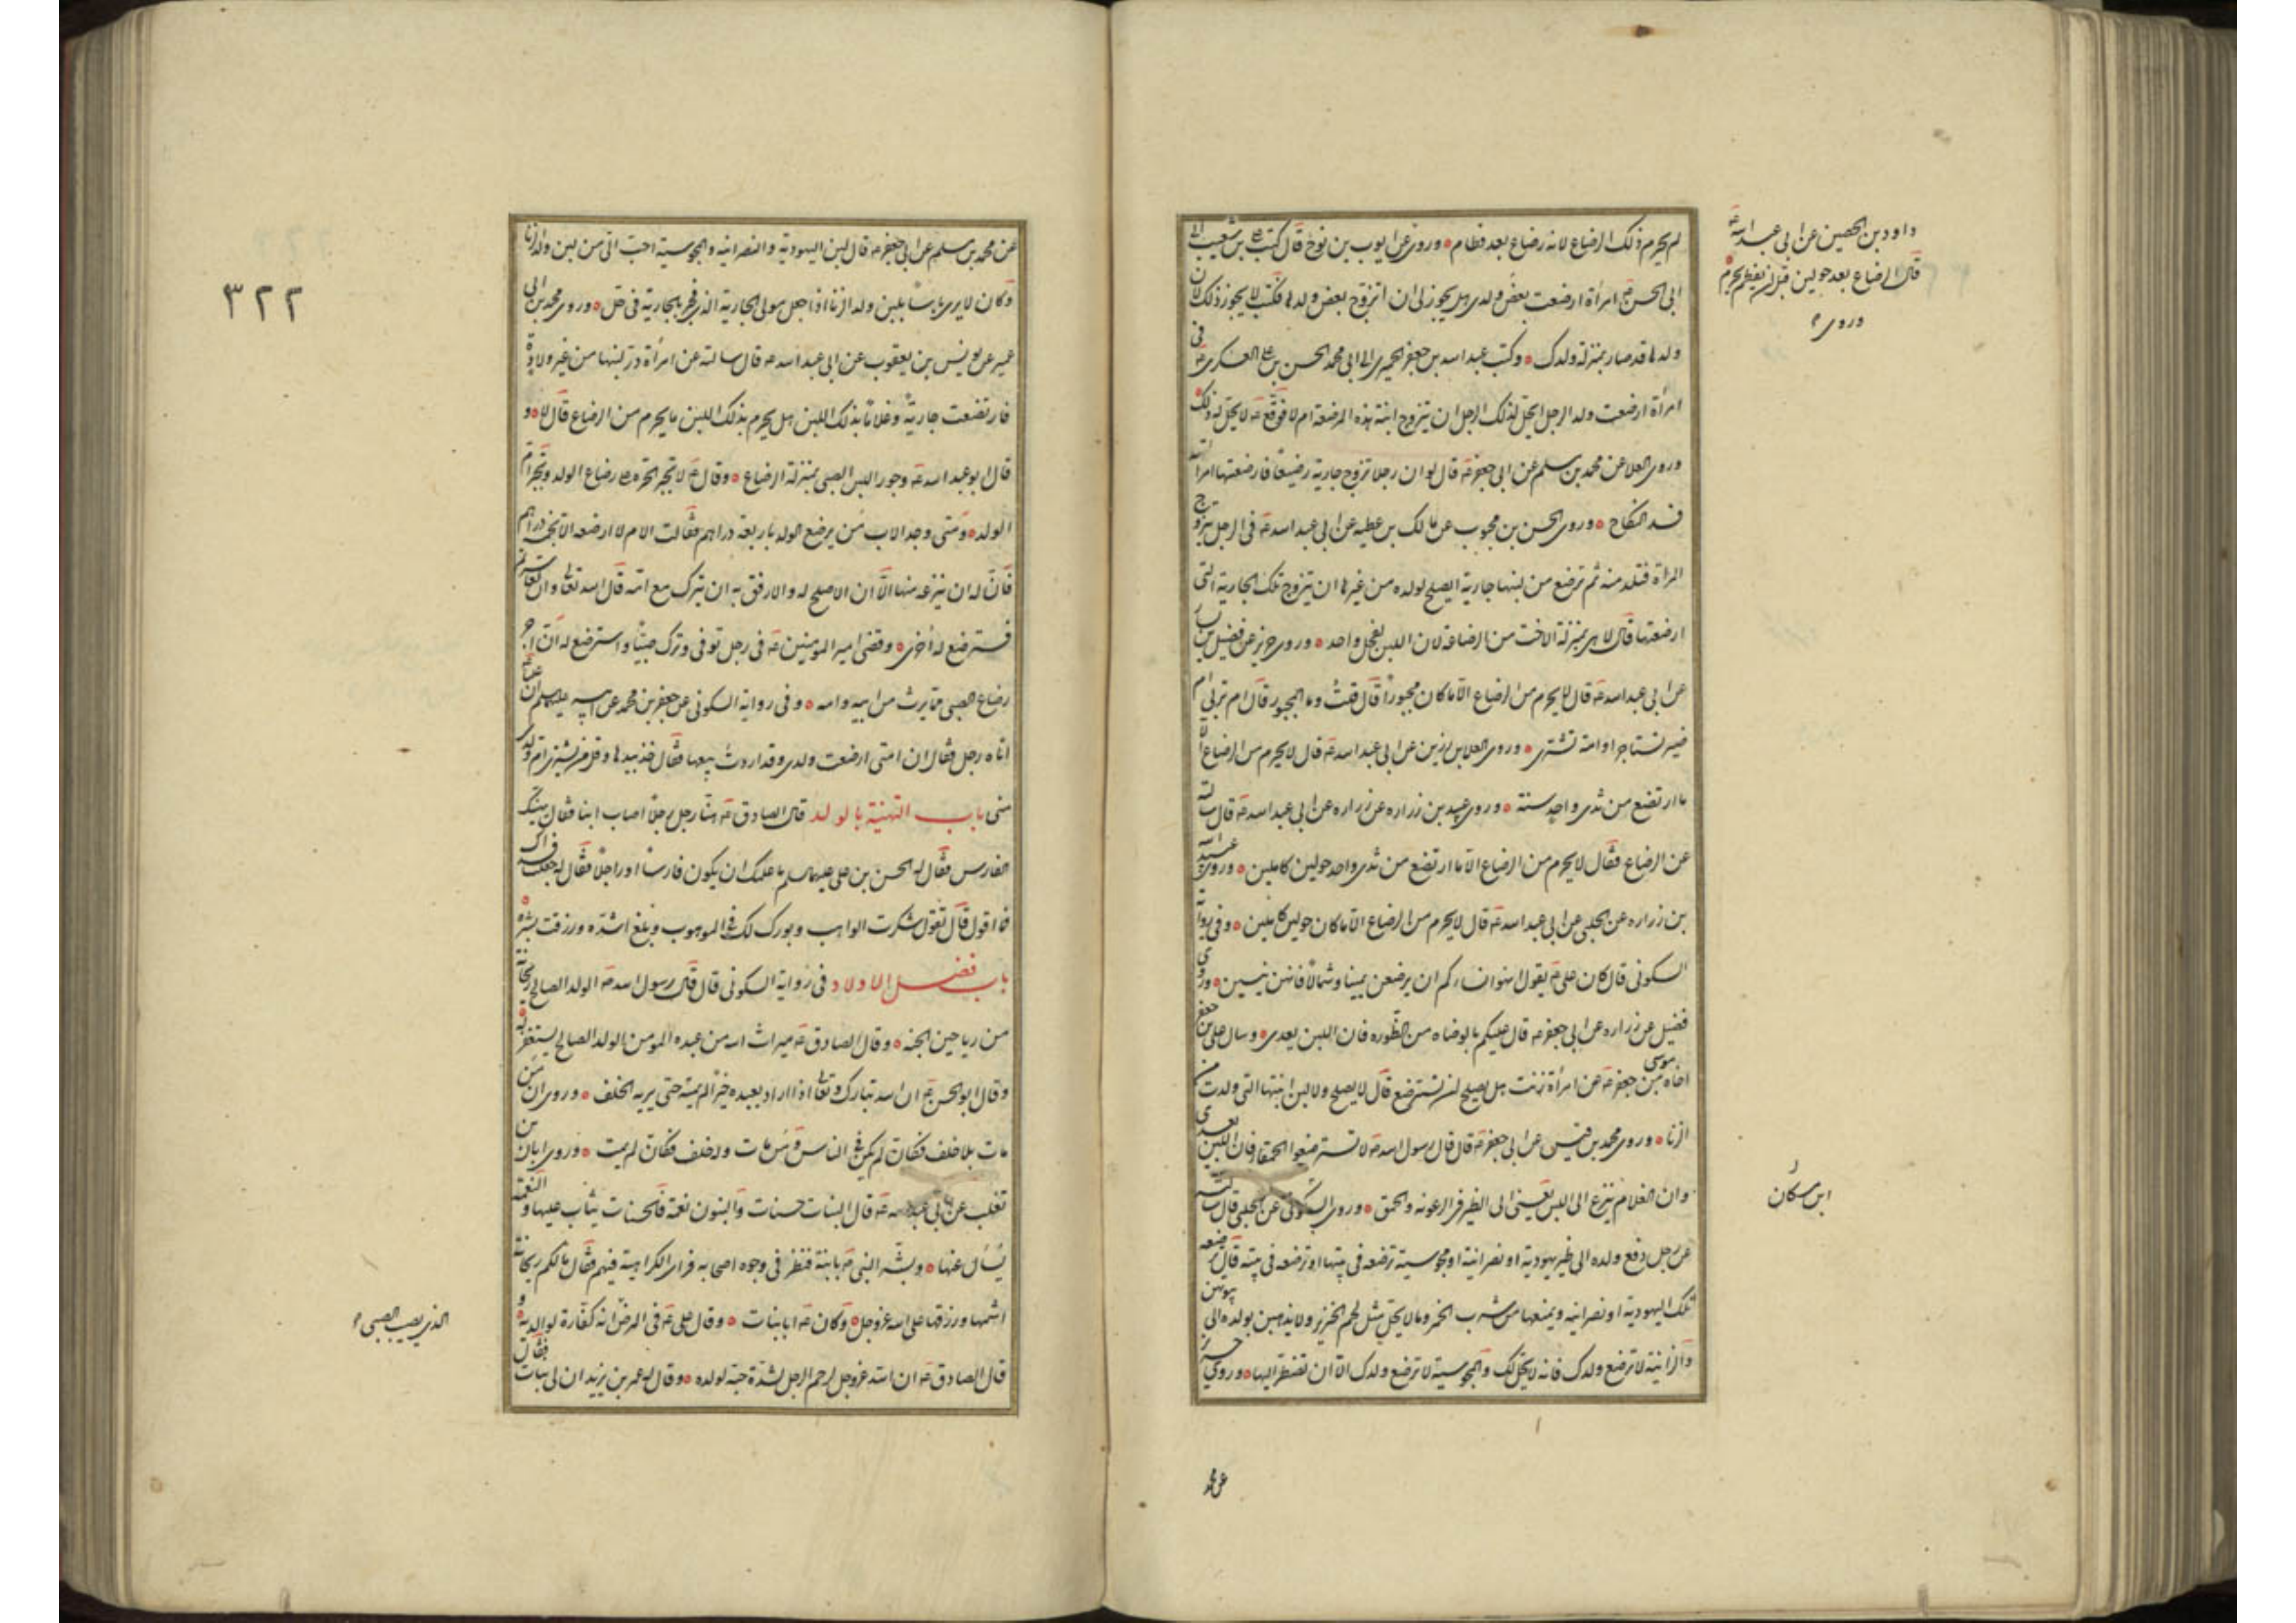 لم يحرم ذلك الرضاع لانه رضاع بعد فطام وروى عن ايوب بن نوح قال كتب علي بن شعيب الى
ابي الحسن ع امرأة ارضعت بعض ولدي هل يجوز لي ان اتزوج بعض ولدها فكتب لا يجوز ذلك لان
ولدها قد صار بمنزلة ولدك وكتب عبد الله بن جعفر الحميري الى ابي محمد الحسن بن علي العسكري ع في
امرأة ارضعت ولد الرجل ايحل لذلك الرجل ان يتزوج ابنة هذه المرضعة ام لا فوقع ع لا يحل له ذلك
وروى العلا عن محمد بن مسلم عن ابي جعفر ع قال لو ان رجلا تزوج جارية رضيعا فارضعتها امرأته
فسد النكاح وروى الحسن بن محبوب عن مالك بن عطيه عن ابي عبد الله ع في الرجل يتزوج
المرأة فتلد منه ثم ترضع من لبنها جارية ايصلح لولده من غيرها ان يتزوج تلك الجارية التي
ارضعتها قال لا هي بمنزلة الاخت من الرضاعة لان اللبن لفحل واحد وروى حريز عن فضيل بن يسار
عن ابي عبد الله ع قال لا يحرم من الرضاع الا ما كان مجبورا قال قلت وما المجبور قال ام تربي ام
ضير تستاجر او امة تشترى وروى العلا بن رزين عن ابي عبد الله ع قال لا يحرم من الرضاع الا
ما ارتضع من ثدي واحد سنة وروى عبيد بن زراره عن زراره عن ابي عبد الله ع قال سالته
عن الرضاع فقال لا يحرم من الرضاع الا ما ارتضع من ثدي واحد حولين كاملين وروى عبيد
بن زراره عن الحلبي عن ابي عبد الله ع قال لا يحرم من الرضاع الا ما كان حولين كاملين وفي رواية
السكوني قال كان علي ع يقول انهوا نساءكم ان يرضعن يمينا وشمالا فانهن ينسين وروى
فضيل عن زراره عن ابي جعفر ع قال عليكم بالوضاه من الظؤره فان اللبن يعدي وسال علي بن جعفر
اخاه موسى بن جعفر ع عن امرأة زنت هل يصلح ان تسترضع قال لا يصلح ولا لبن ابنتها التي ولدت من
الزنا وروى محمد بن قيس عن ابي جعفر ع قال قال رسول الله ص لا تسترضعوا الحمقا فان اللبن يعدي
وان الغلام ينزع الى اللبن يعني الى الظير في الرعونه والحمق وروى السكوني عن الحلبي قال سالته
عن رجل دفع ولده الى ظير يهودية او نصرانية او مجوسية ترضعه في بيتها او ترضعه في بيته قال ترضعه
تلك اليهودية او نصرانيه ويمنعها من شرب الخمر وما لا يحل مثل لحم الخنزير ولا يذهبن بولده الى بيوتهن
والزانية لا ترضع ولدك فانه لا يحل لك والمجوسية لا ترضع ولدك الا ان تضطر اليها وروى حريز
داود بن الحصين عن ابي عبد الله ع
قال الرضاع بعد حولين قبل ان يفطم يحرم
وروى
ابن مسكان
عن محمد
عن محمد بن مسلم عن ابي جعفر ع قال لبن اليهودية والنصرانيه والمجوسية احب الي من لبن ولد الزنا
وكان لا يرى باسا بلبن ولد الزنا اذا جعل مولى الجارية الذي فجر بالجارية في حل وروى محمد بن ابي
عمير عن يونس بن يعقوب عن ابي عبد الله ع قال سالته عن امرأة در لبنها من غير ولادة
فارضعت جارية وغلاما بذلك اللبن هل يحرم بذلك اللبن ما يحرم من الرضاع قال لا و
قال ابو عبد الله ع وجور اللبن الصبي بمنزلة الرضاع وقال ع لا تجبر الحرة على رضاع الولد وتجبر ام
الولد ومتى وجد الاب من يرضع الولد باربعة دراهم فقالت الام لا ارضعه الا بخمسة دراهم
فان له ان ينزعه منها الا ان الاصلح له والارفق به ان يترك مع امه قال الله تعالى وان تعاسرتم
فسترضع له اخرى وقضى امير المومنين ع في رجل توفي وترك صبيا واسترضع له ان اجر
رضاع الصبي مما يرث من ابيه وامه وفي رواية السكوني عن جعفر بن محمد عن ابيه عليهما السلم ان عليا
اتاه رجل فقال ان امتي ارضعت ولدي وقد اردت بيعها فقال خذ بيدها وقل من يشتري ام ولدي
مني باب التهنية بالولد قال الصادق ع هنأ رجل رجلا اصاب ابنا فقال يهنيك
الفارس فقال له الحسن بن علي عليهما السلم ما علمك ان يكون فارسا او راجلا فقال له جعلت فداك
فما اقول قال تقول شكرت الواهب وبورك لك في الموهوب وبلغ اشده ورزقت بره
باب فضل الاولاد في رواية السكوني قال قال رسول الله ص الولد الصالح ريحانة
من رياحين الجنه وقال الصادق ع ميراث الله من عبده المومن الولد الصالح يستغفر له
وقال ابو الحسن ع ان الله تبارك وتعالى اذا اراد بعبده خيرا لم يمته حتى يريه الخلف وروى ان من
مات بلا خلف فكان لم يكن في الناس ومن مات وله خلف فكان لم يمت وروى ابان بن
تغلب عن ابي عبد الله ع قال البنات حسنات والبنون نعمة فالحسنات يثاب عليها والنعمة
يسأل عنها وبشر النبي ص بابنة فنظر في وجوه اصحابه فراى الكراهية فيهم فقال ما لكم ريحانة
اشمها ورزقها على الله عز وجل وكان ص ابا بنات وقال علي ع في المرض انه كفارة لوالديه و
قال الصادق ع ان الله عز وجل ليرحم الرجل لشدة حبه لولده وقال له عمر بن يزيد ان لي بنات فقال
٣٢٢
الذي يصيب الصبي